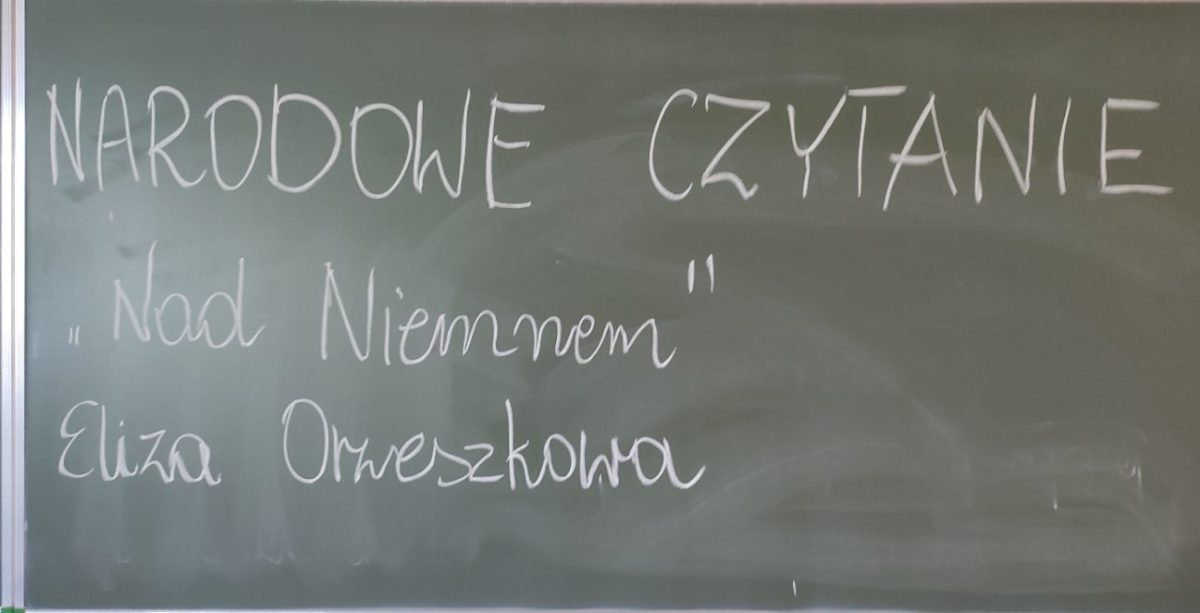 NARODOWE CZYTANIE
„Nad Niemnem"
Eliza Orzeszkowa